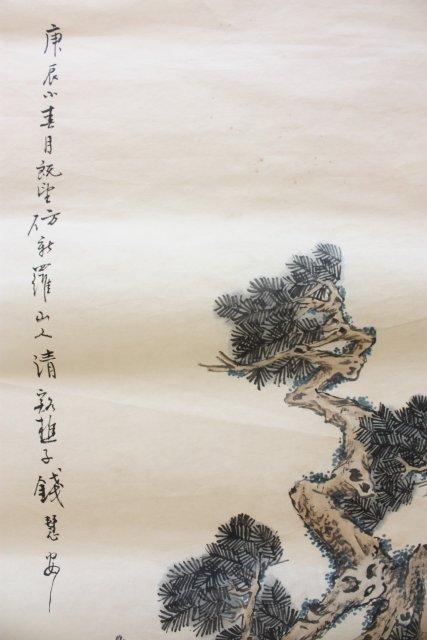 庚辰小春月既望仿新羅山人清谿樵子錢慧安